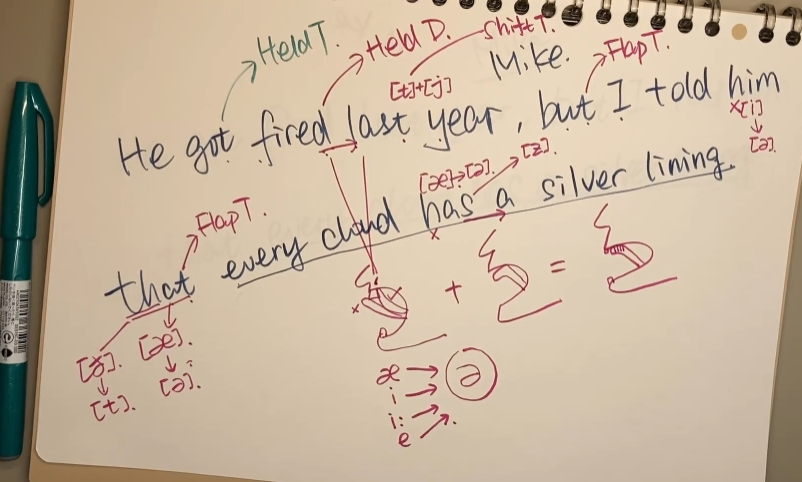 Held T.
Held D.
Shift T.
Mike.
Flap T.
[t]+[j]
He got fired last year, but I told him
x[i]
↓
[ə].
[æ]→[ə].
[z].
Flap T.
that every cloud has a silver lining.
x
x
+ =
[ð]. [æ].
↓ ↓
[t]. [ə].
æ → ə
i →
i: →
e →